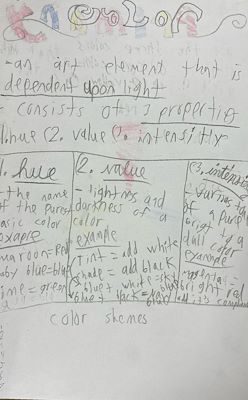 Color
-an art element that is
dependent upon light
- consists of 3 propertie
1.hue (2. value (3. intensitiy
1. hue
-the name
of the purest
basic color
exaple
maroon=red
baby blue=blue
lime=green
2. value
- lightnes and
darkness of a
color
example
tint = add white
shade = add black
blue+ white=
blue+ black=
(3. intensi
of a pure
brigt to a
dull color
example
bright red
color shemes